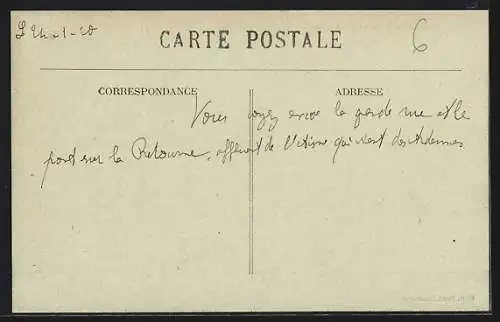 L 24-1-20
CARTE POSTALE
6
CORRESPONDANCE
ADRESSE
Vous voyez encore la grande rue et le
pont sur la Retourne, affluent de l'Aisne qui vient des Ardennes